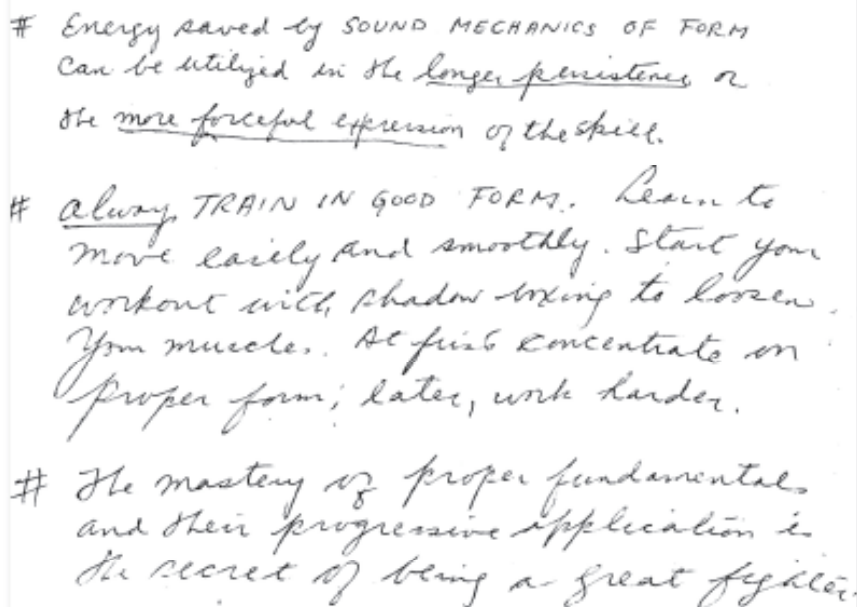 # Energy saved by SOUND MECHANICS OF FORM
can be utilized in the longer persistence or
the more forceful expression of the skill.
# Always TRAIN IN GOOD FORM. Learn to
move easily and smoothly. Start your
workout with shadow boxing to loosen
your muscles. At first concentrate on
proper form; later, work harder.
# The mastery of proper fundamentals
and their progressive application is
the secret of being a great fighter.